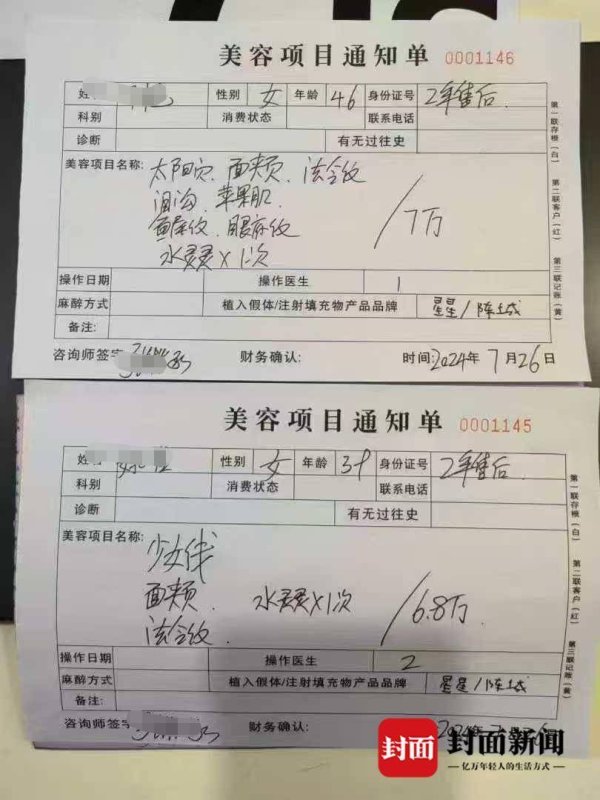 美容项目通知单 0001146
姓 性别 女 年龄 46 身份证号 2年售后.
科别 消费状态 联系电话
诊断 有无过往史
美容项目名称: 太阳穴、面夹页、法令纹
泪沟、苹果肌
鱼尾纹、眼
水灵灵×1次
/7万
操作日期 操作医生 1
麻醉方式 植入假体/注射填充物产品品牌 星星/陈土城
备注:
咨询师签字 财务确认: 时间:2024年7月26日
第一联存根(白) 第二联客户(红) 第三联记账(黄)
美容项目通知单 0001145
姓 性别 女 年龄 39 身份证号 2年售后.
科别 消费状态 联系电话
诊断 有无过往史
美容项目名称:
少女线
面颊、 水灵灵×1次 /6.8万
法令纹.
操作日期 操作医生 2
麻醉方式 植入假体/注射填充物产品品牌 星星/陈土城
备注:
咨询师签字 财务确认:
第一联存根(白) 第二联客户(红) 第三联记账(黄)
封面 封面新闻
亿万年轻人的生活方式